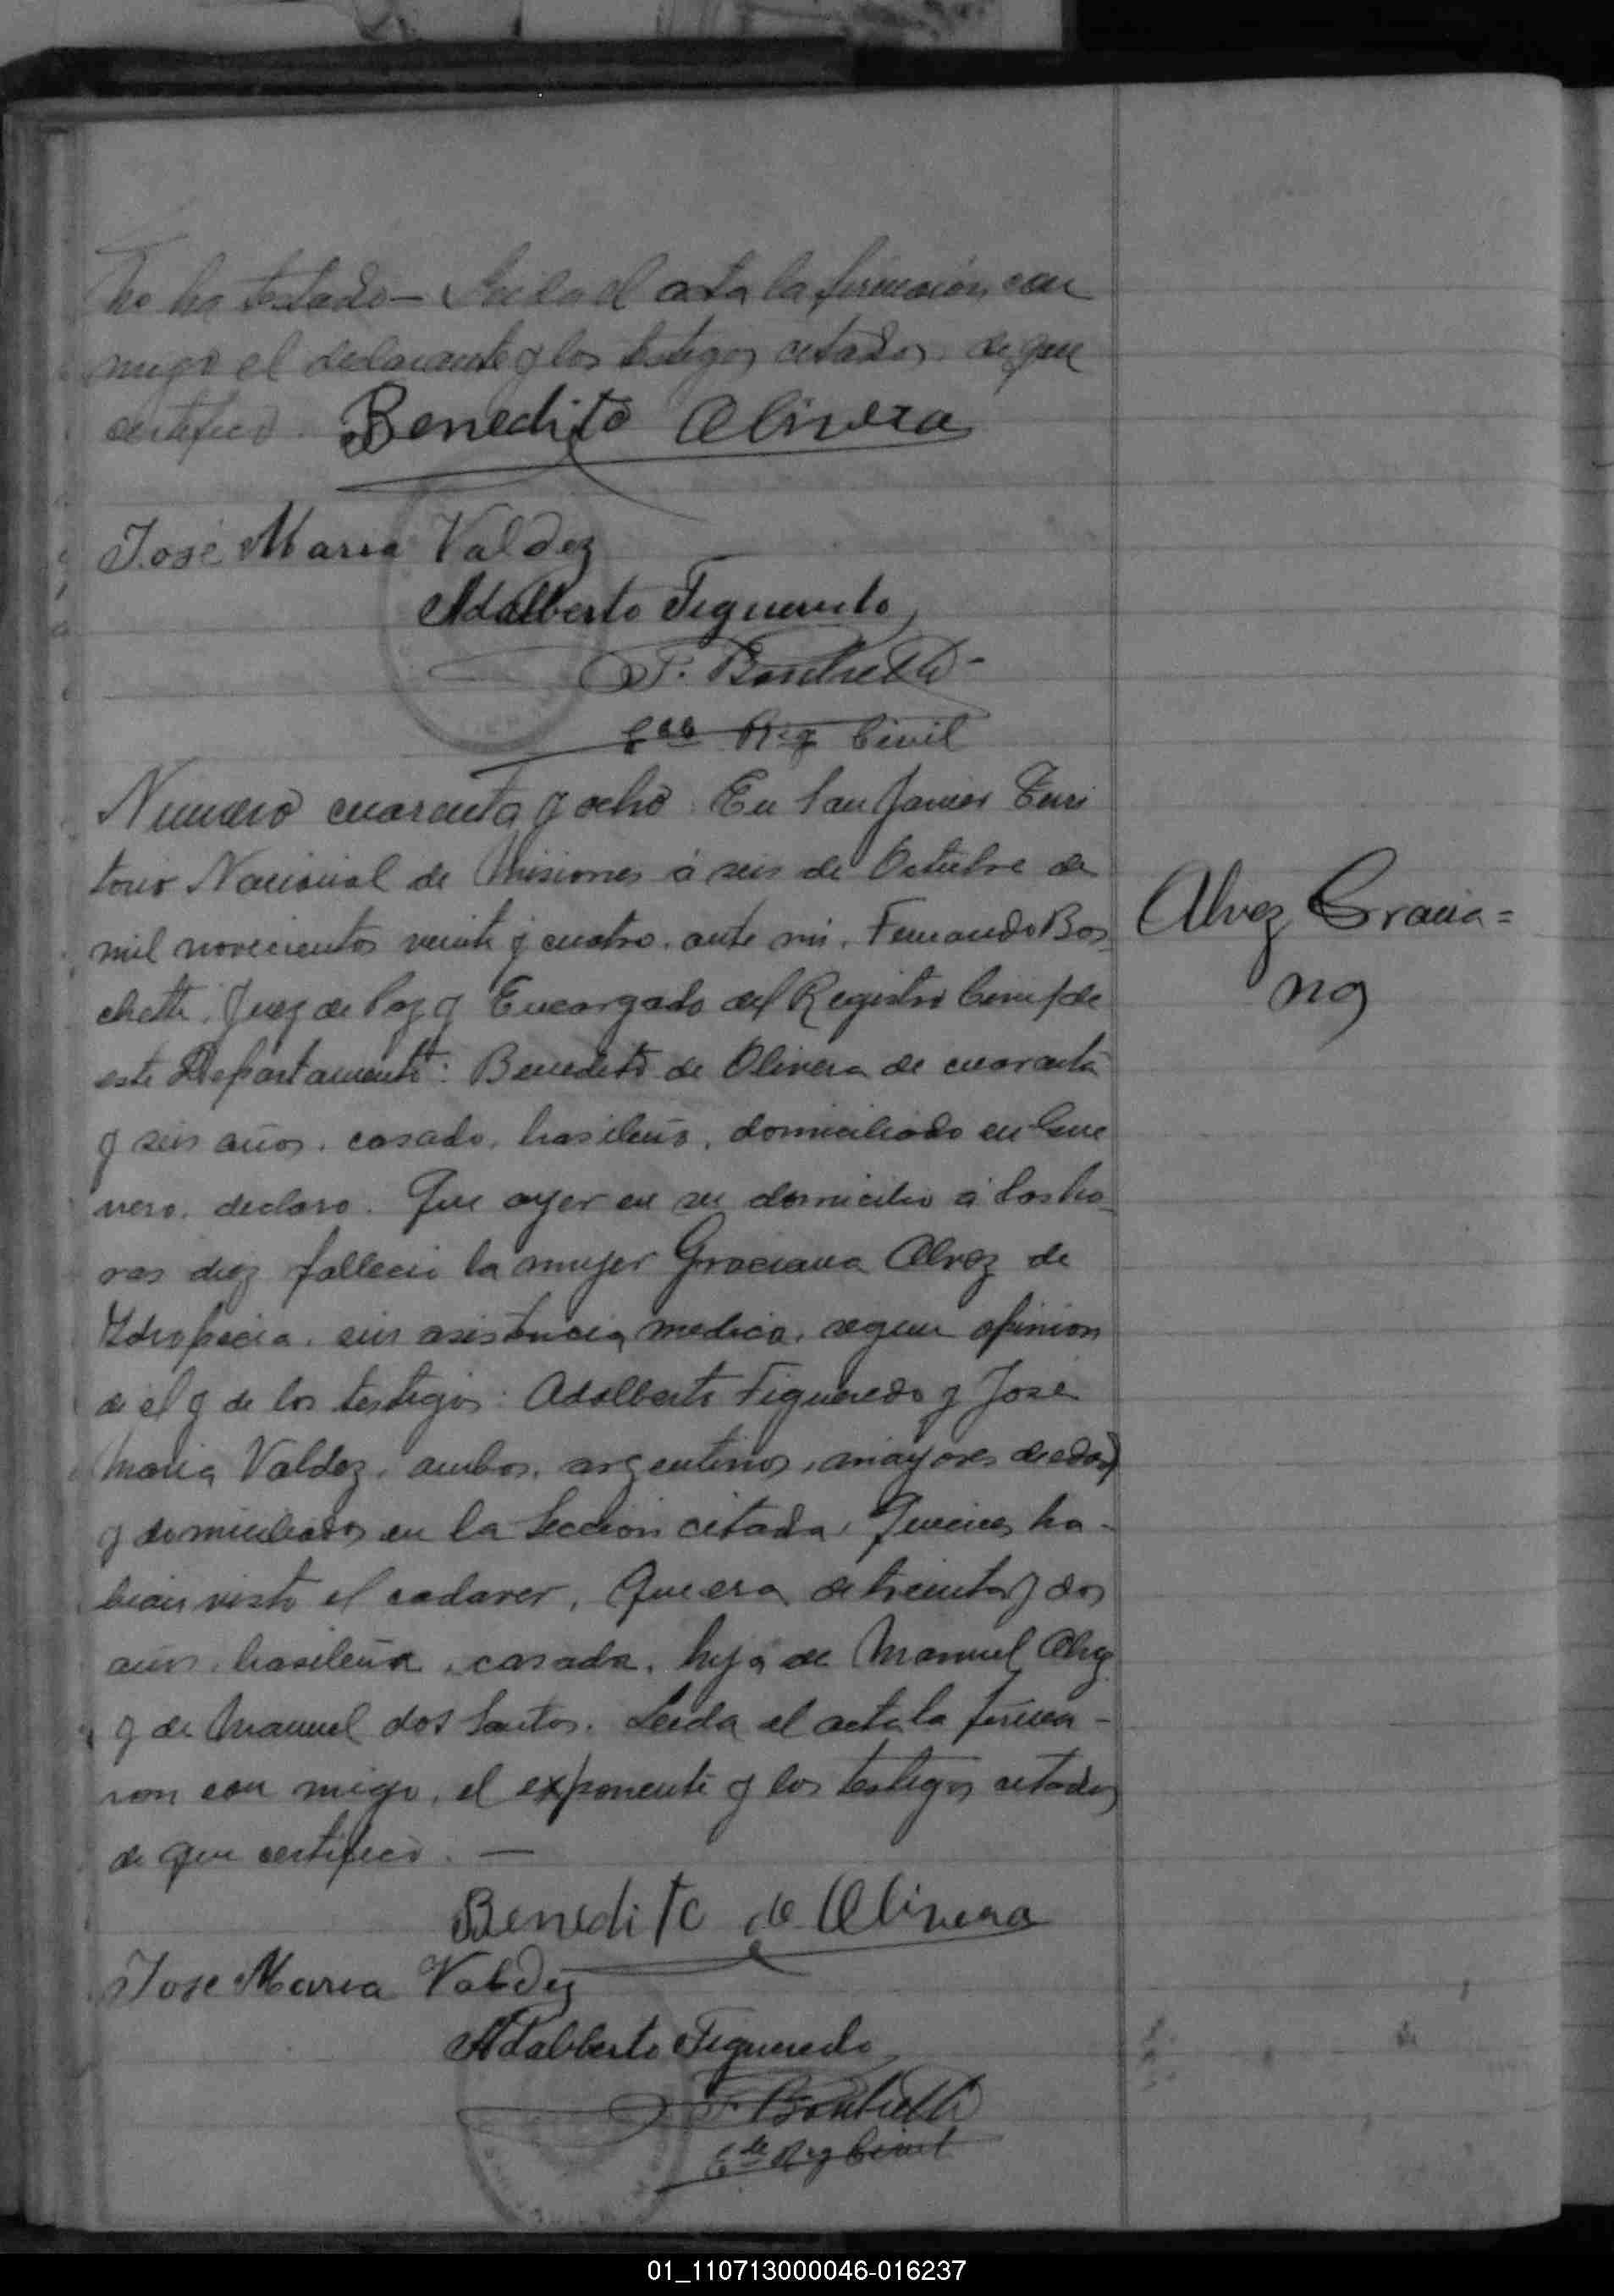 no ha testado — Leida el acta la firmaron con
migo el declarante y los testigos citados. de que
certifico. Benedito Olivera
José Maria Valdez
Adalberto Figueredo
F. Boschetti
Edo Reg Civil
Numero cuarenta y ocho. En San Javier Terri
torio Nacional de Misiones á seis de Octubre de
mil novecientos veinte y cuatro. ante mi, Fernando Bos
chetti, Juez de Paz y Encargado del Registro Civil de
este Departamento: Benedito de Olivera de cuarenta
y seis años. casado, brasileño, domiciliado en
declaro. Que ayer en su domicilio á las ho
ras diez fallecio la mujer Graciana Alvez de
Idropecia. sin asistencia medica, segun opinion
de el y de los testigos: Adalberto Figueredo y José
Maria Valdez, ambos, argentinos, mayores de edad
y domiciliados en la Seccion citada, Quienes ha-
bian visto el cadaver, Que era de treinta y dos
años, brasileña, casada, hija de Manuel Alvez
y de Manuel dos Santos. Leida el acta la firma-
ron con migo, el exponente y los testigos citados
de que certifico. —
Benedito de Olivera
Jose Maria Valdez
Adalberto Figueredo
F. Boschetti
Edo Reg Civil
Alvez Gracia=
na
01_110713000046-016237